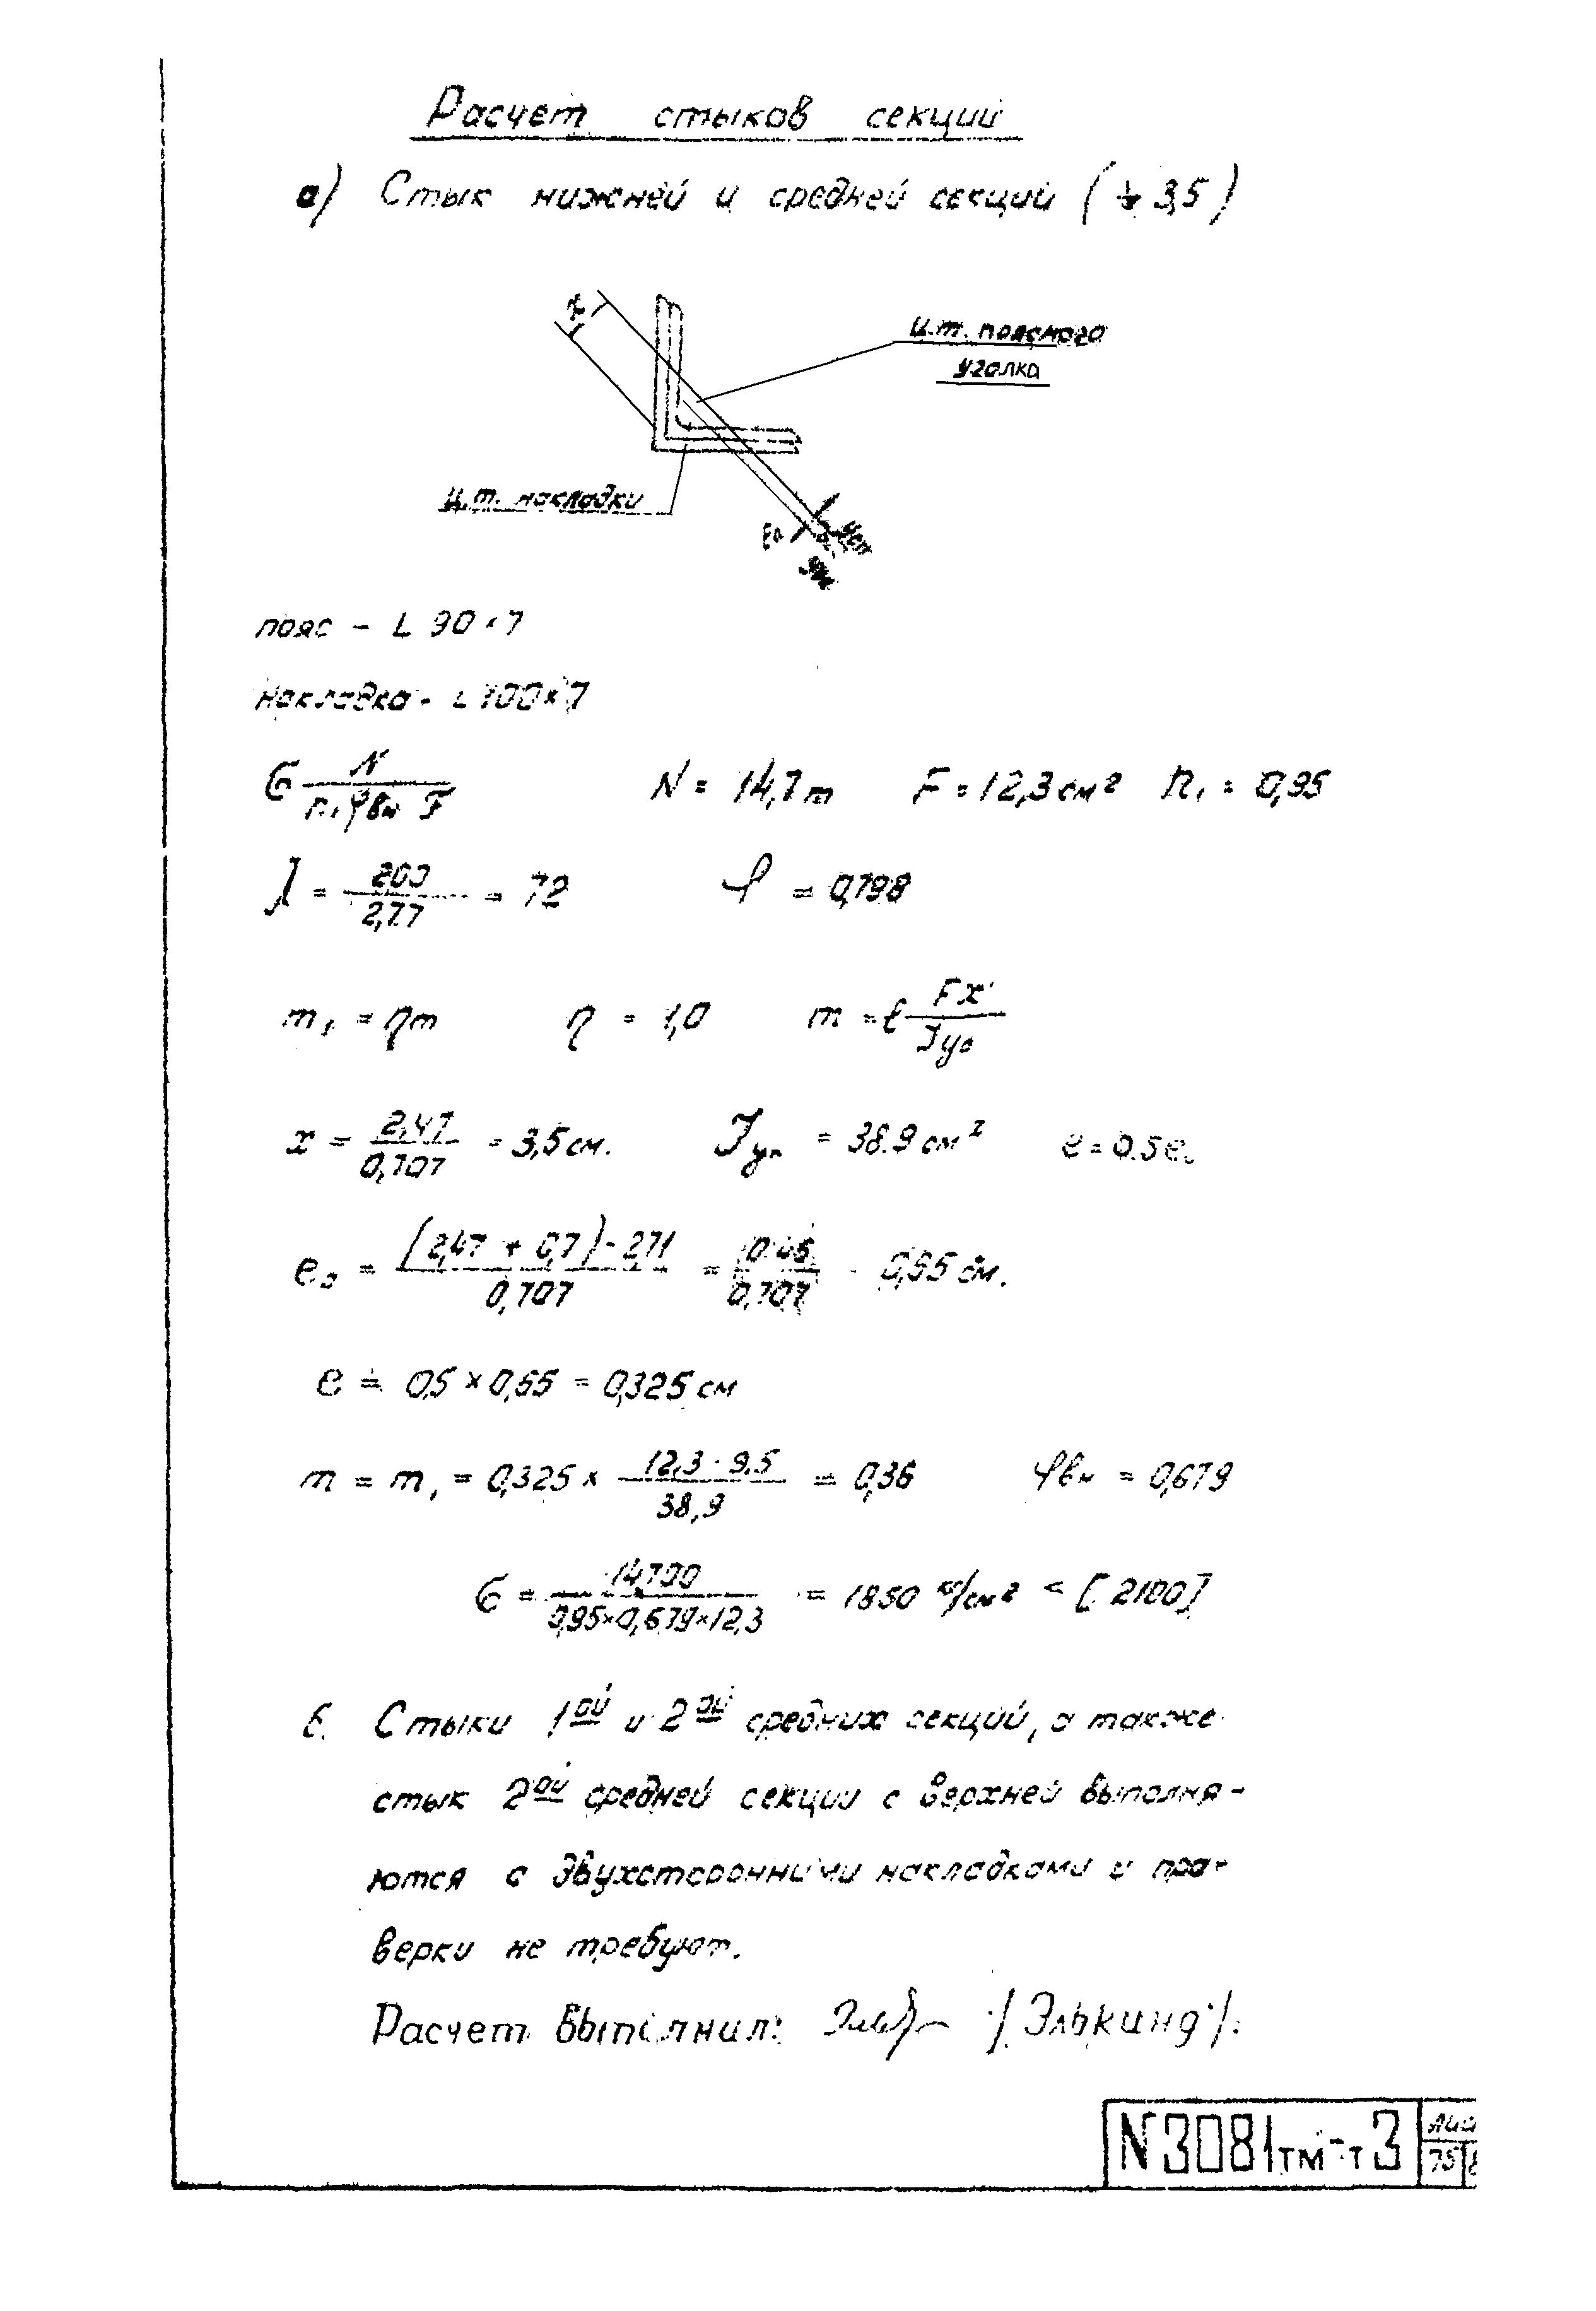 Расчет стыков секций
а) Стык нижней и средней секций ( 3,5)
x
ц.т. поясного
уголка
ц.т. накладки
e₀
пояс - L 90×7
накладка - L 100×7
σ N / n₁ φвн F   N = 14,7 т   F = 12,3 см²   n₁ = 0,95
λ = 200 / 2,77 = 72   φ = 0,798
m₁ = ηm   η = 1,0   m = e Fx / Jy₀
x = 2,47 / 0,707 = 3,5 см.   Jy₀ = 38.9 см²   e = 0.5 e₀
e₀ = (2,47 + 0,7) - 2,71 / 0,707 = 0,46 / 0,707 = 0,65 см.
e = 0,5 × 0,65 = 0,325 см
m = m₁ = 0,325 × 12,3 · 9.5 / 38,9 = 0,36   φвн = 0,679
σ = 14700 / 0,95×0,679×12,3 = 1850 кг/см² < [2100]
б. Стыки 1ой и 2ой средних секций, а также
стык 2ой средней секции с верхней выполня-
ются с двухсторонними накладками и про-
верки не требуют.
Расчет выполнил: /Элькинд/.
N3081тм-т3
75